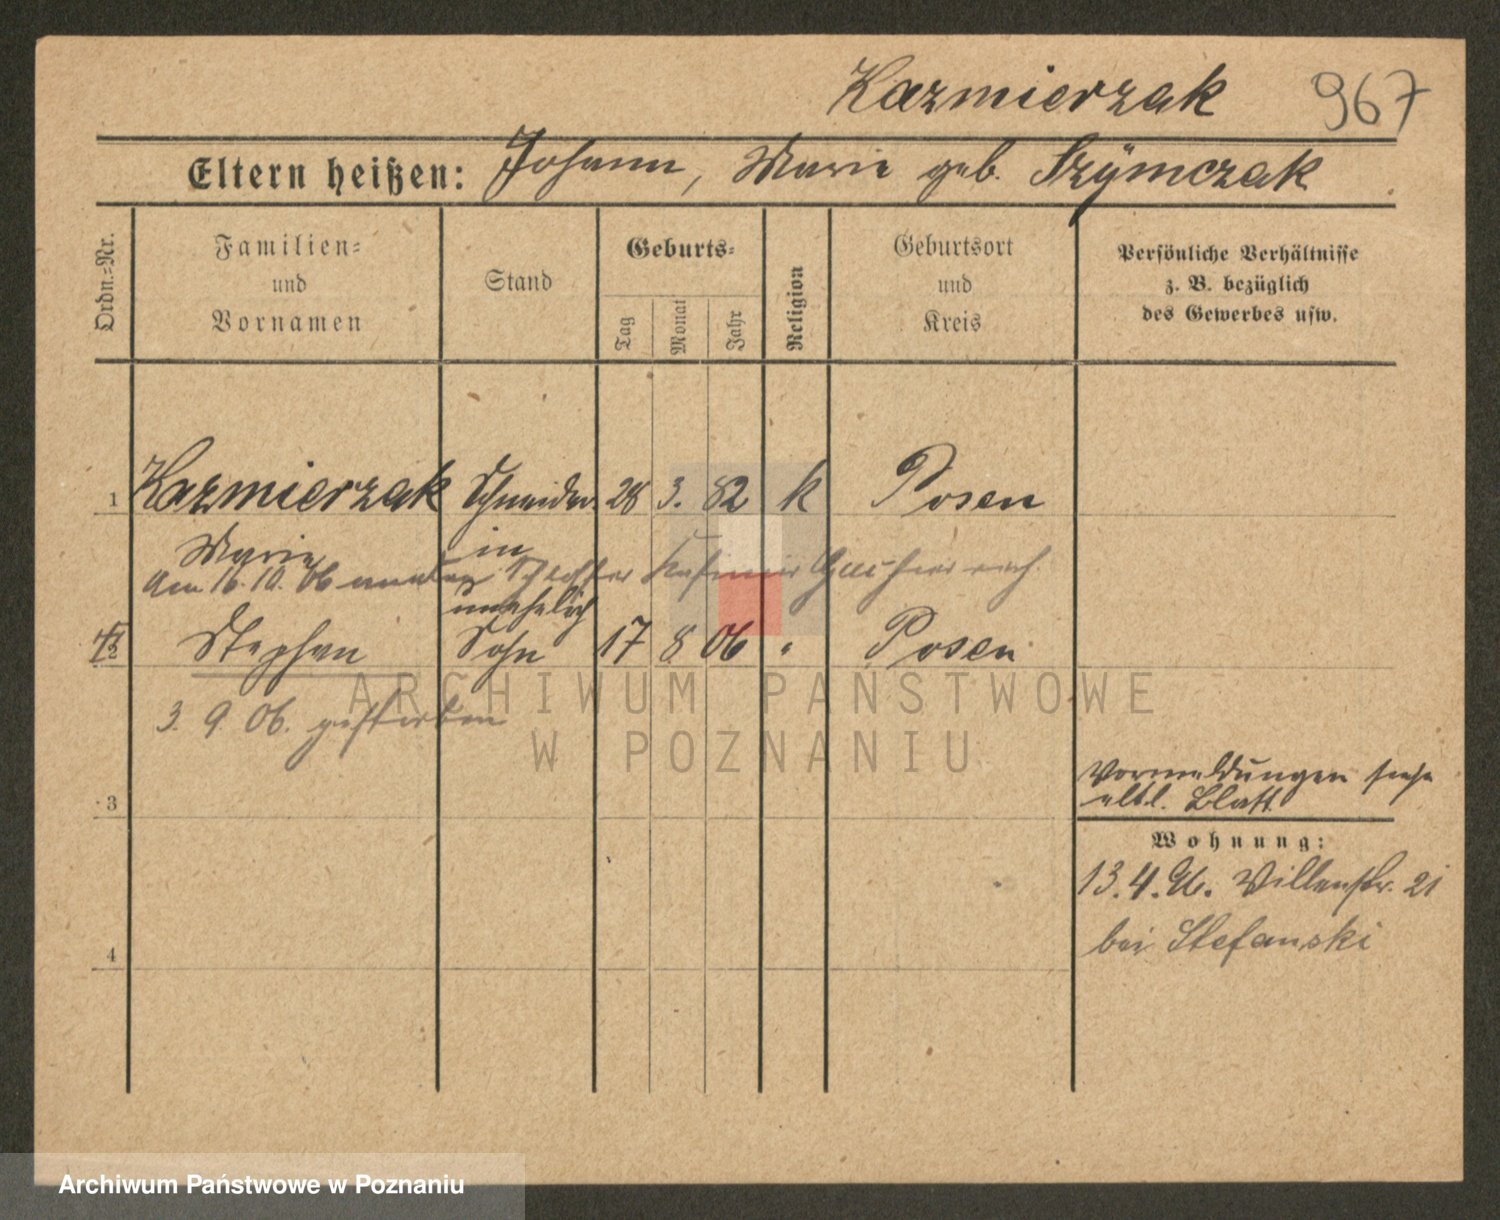 Kazmierzak 967
Eltern heißen: Johann, Marie geb. Szÿmczak
Ordn.=Nr.
Familien=
und
Vornamen
Stand
Geburts=
Tag
Monat
Jahr
Religion
Geburtsort
und
Kreis
Persönliche Verhältnisse
z. B. bezüglich
des Gewerbes usw.
1 Kazmierzak Schneider 28 3. 82 k Posen
Marie in
Am 16. 10. 06 Kasimir
unehelich
2 Stephan Sohn 17 8 06 " Posen
3. 9. 06. gestorben
ARCHIWUM PAŃSTWOWE
W POZNANIU
Vormeldungen siehe
Blatt
3
Wohnung:
13. 4. 96. Villenstr. 21
bei Stefanski
4
Archiwum Państwowe w Poznaniu